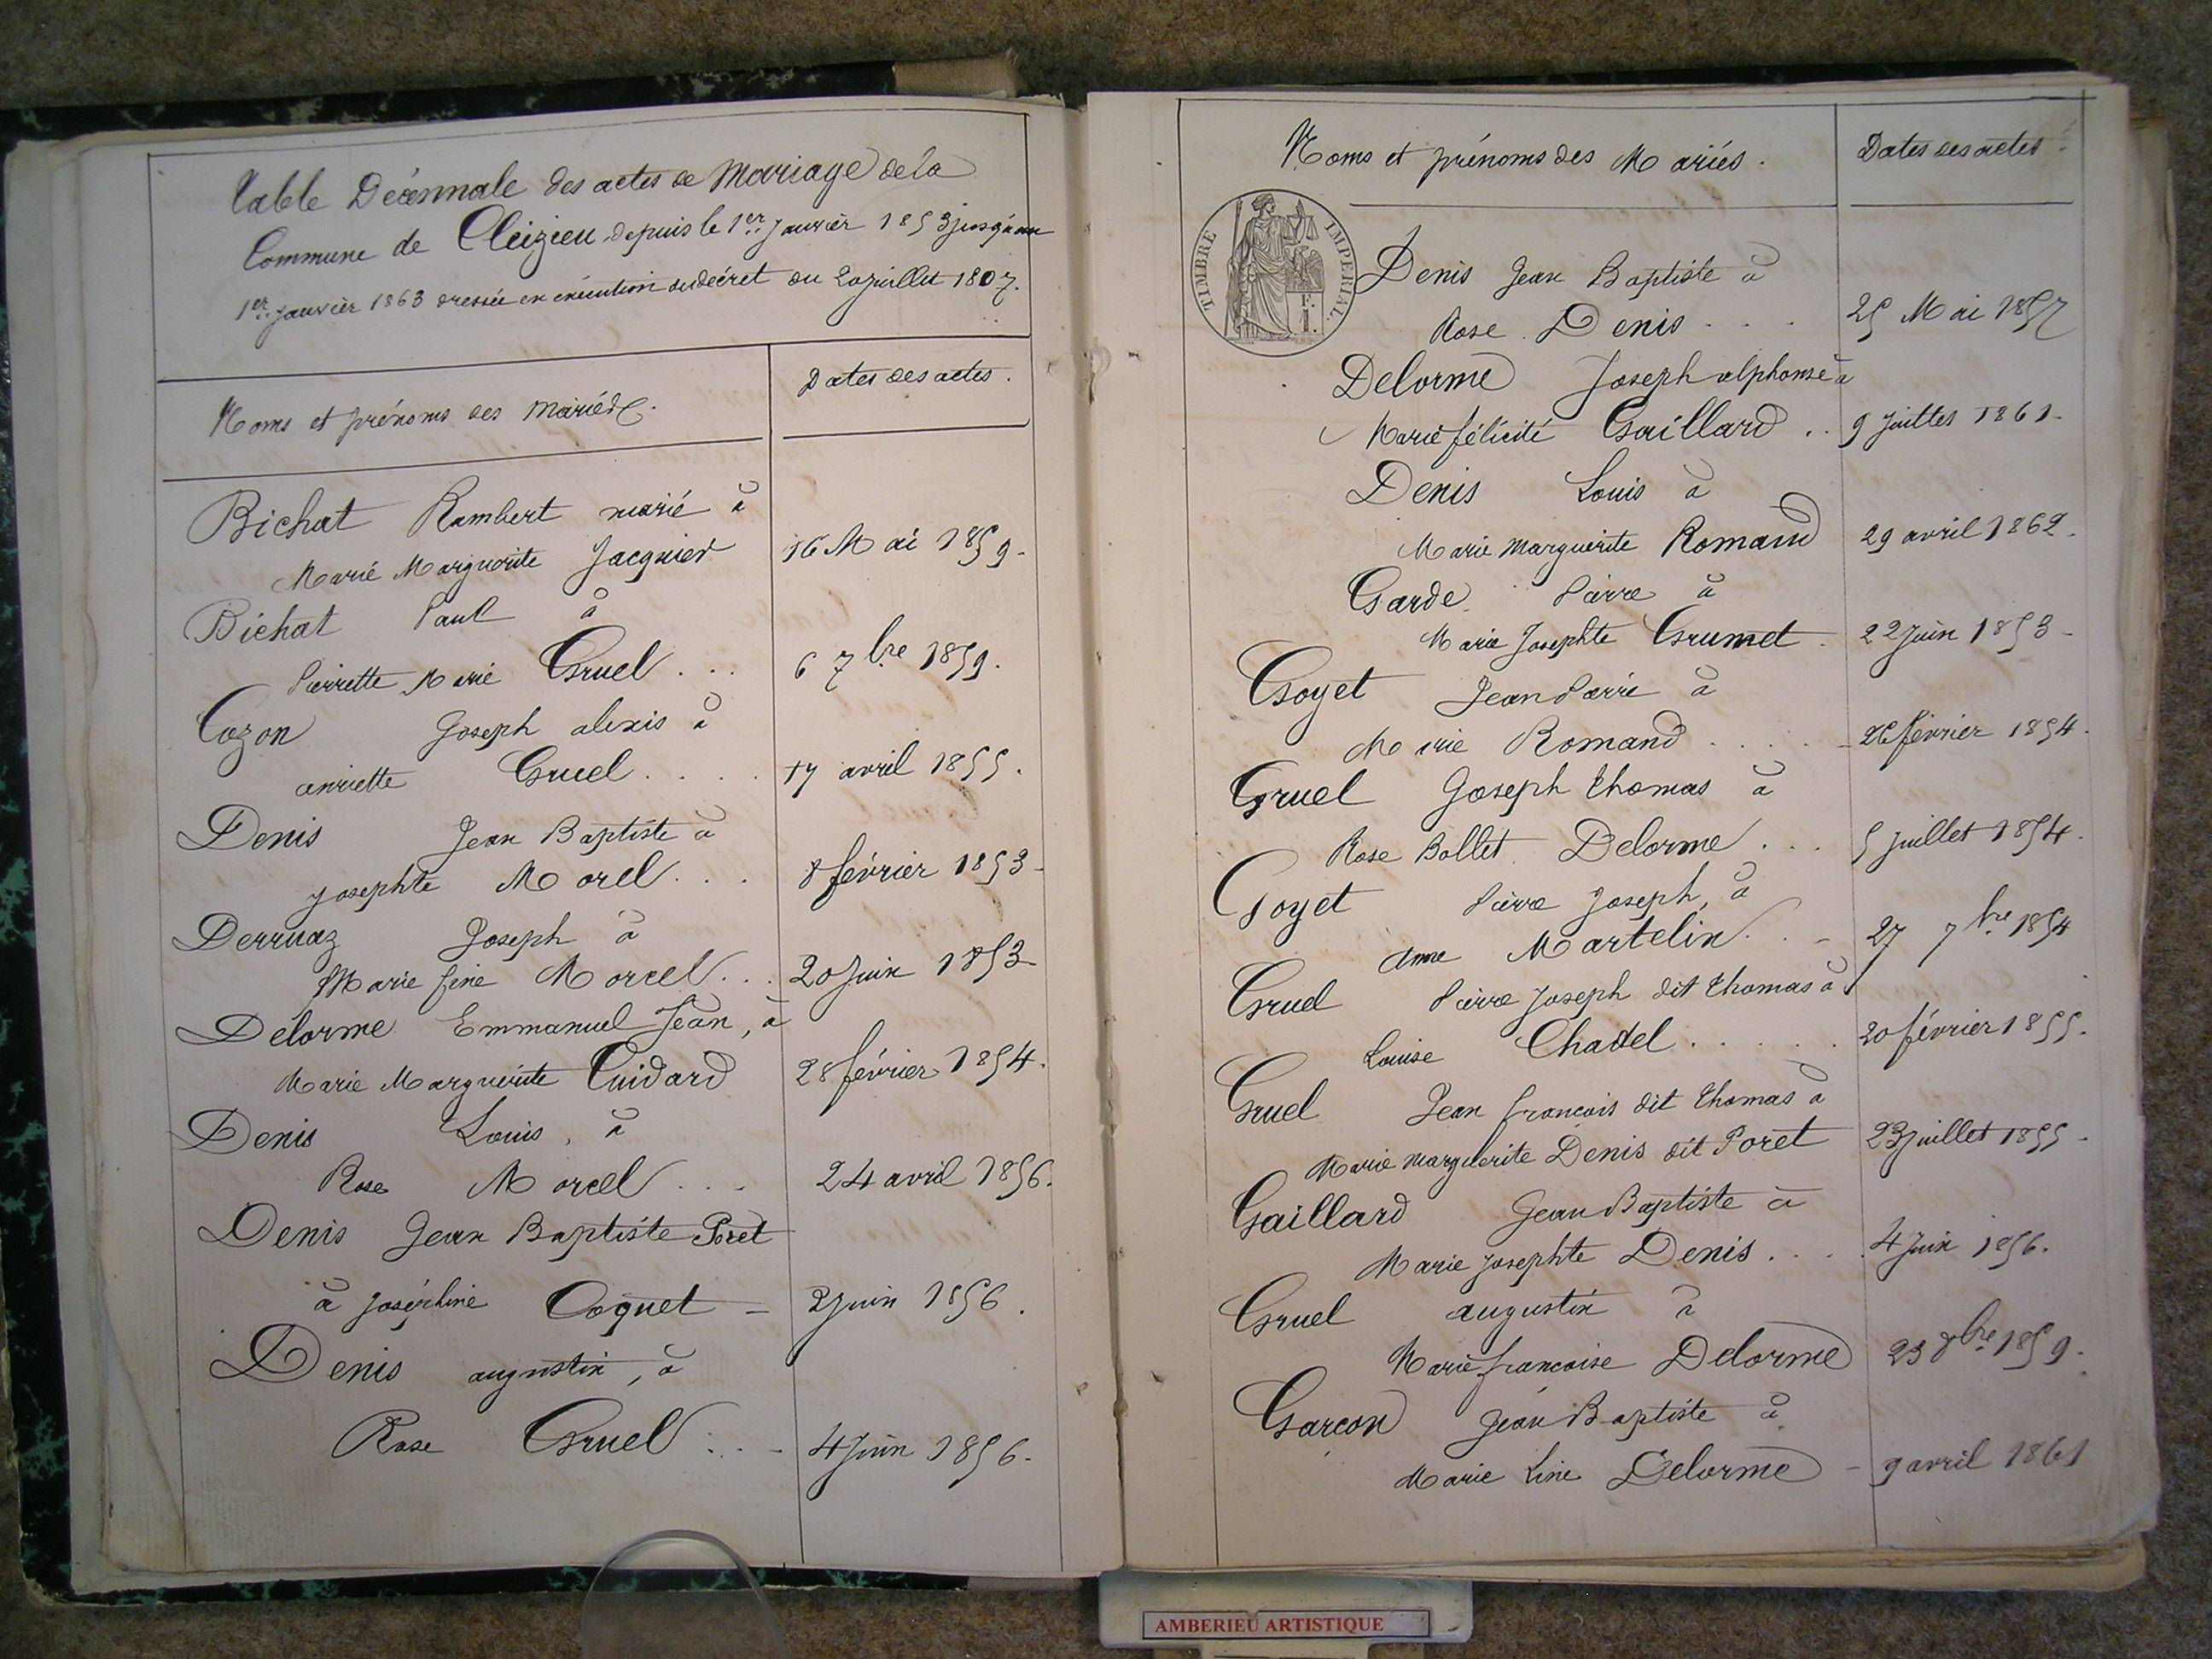 Table Décennale des actes de Mariage de la
Commune de Cleizieu depuis le 1er Janvier 1853 jusqu'au
1er Janvier 1863 dressée en exécution du décret du 20 juillet 1807.
Noms et prénoms des Mariés.
Dates des actes.
Bichat Rambert marié à
Marie Marguerite Jacquier 16 Mai 1859.
Bichat Paul à
Pierrette Marie Gruel . . . 6 7bre 1859.
Cozon Joseph alexis à
anriette Gruel . . . . 17 avril 1855.
Denis Jean Baptiste à
Josephte Morel . . . 8 février 1853
Derruaz Joseph à
Marie fine Morcel . . . 20 Juin 1853
Delorme Emmanuel Jean, à
Marie Marguerite Cuidard 28 février 1854.
Denis Louis, à
Rose Morcel . . . 24 avril 1856.
Denis Jean Baptiste Poret
à Joséphine Coquet 2 Juin 1856.
Denis augustin, à
Rose Gruel . . . 4 Juin 1856.
Noms et prénoms des Mariés.
Dates des actes.
TIMBRE IMPERIAL
Denis Jean Baptiste à
Rose Denis . . . 25 Mai 1857
Delorme Joseph alphonse à
Marie félicité Gaillard . . 9 Juillet 1861.
Denis Louis à
Marie Marguerite Romand 29 avril 1862.
Garde Pierre à
Marie Josephte Grumet 22 Juin 1853
Goyet Jean Pierre à
Marie Romand . . . . 26 février 1854.
Gruel Joseph Thomas à
Rose Bollet Delorme . . . 5 Juillet 1854.
Goyet Pierre Joseph, à
Anne Martelin . . 27 7bre 1854
Gruel Pierre Joseph dit Thomas à
Louise Chattel . . . . . 20 février 1855.
Gruel Jean francois dit Thomas à
Marie Marguerite Denis dit Poret 23 juillet 1855.
Gaillard Jean Baptiste à
Marie Josephte Denis . . . . 4 Juin 1856.
Gruel augustin à
Marie francoise Delorme 23 8bre 1859.
Garcon Jean Baptiste à
Marie Line Delorme 9 avril 1861
AMBERIEU ARTISTIQUE